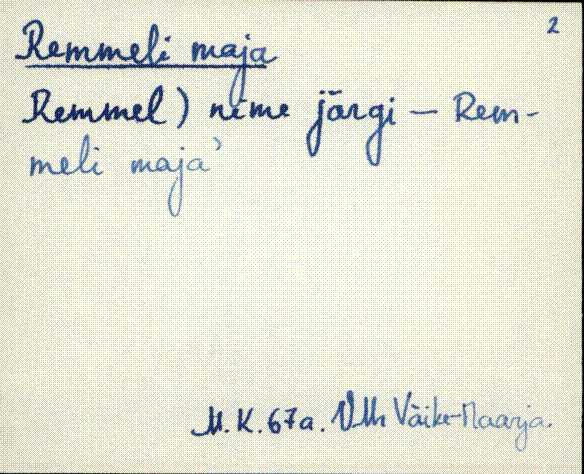 2
Remmeli maja
Remmel) nime järgi — Rem-
meli maja’
M.K. 67a. VMr Väike-Maarja.